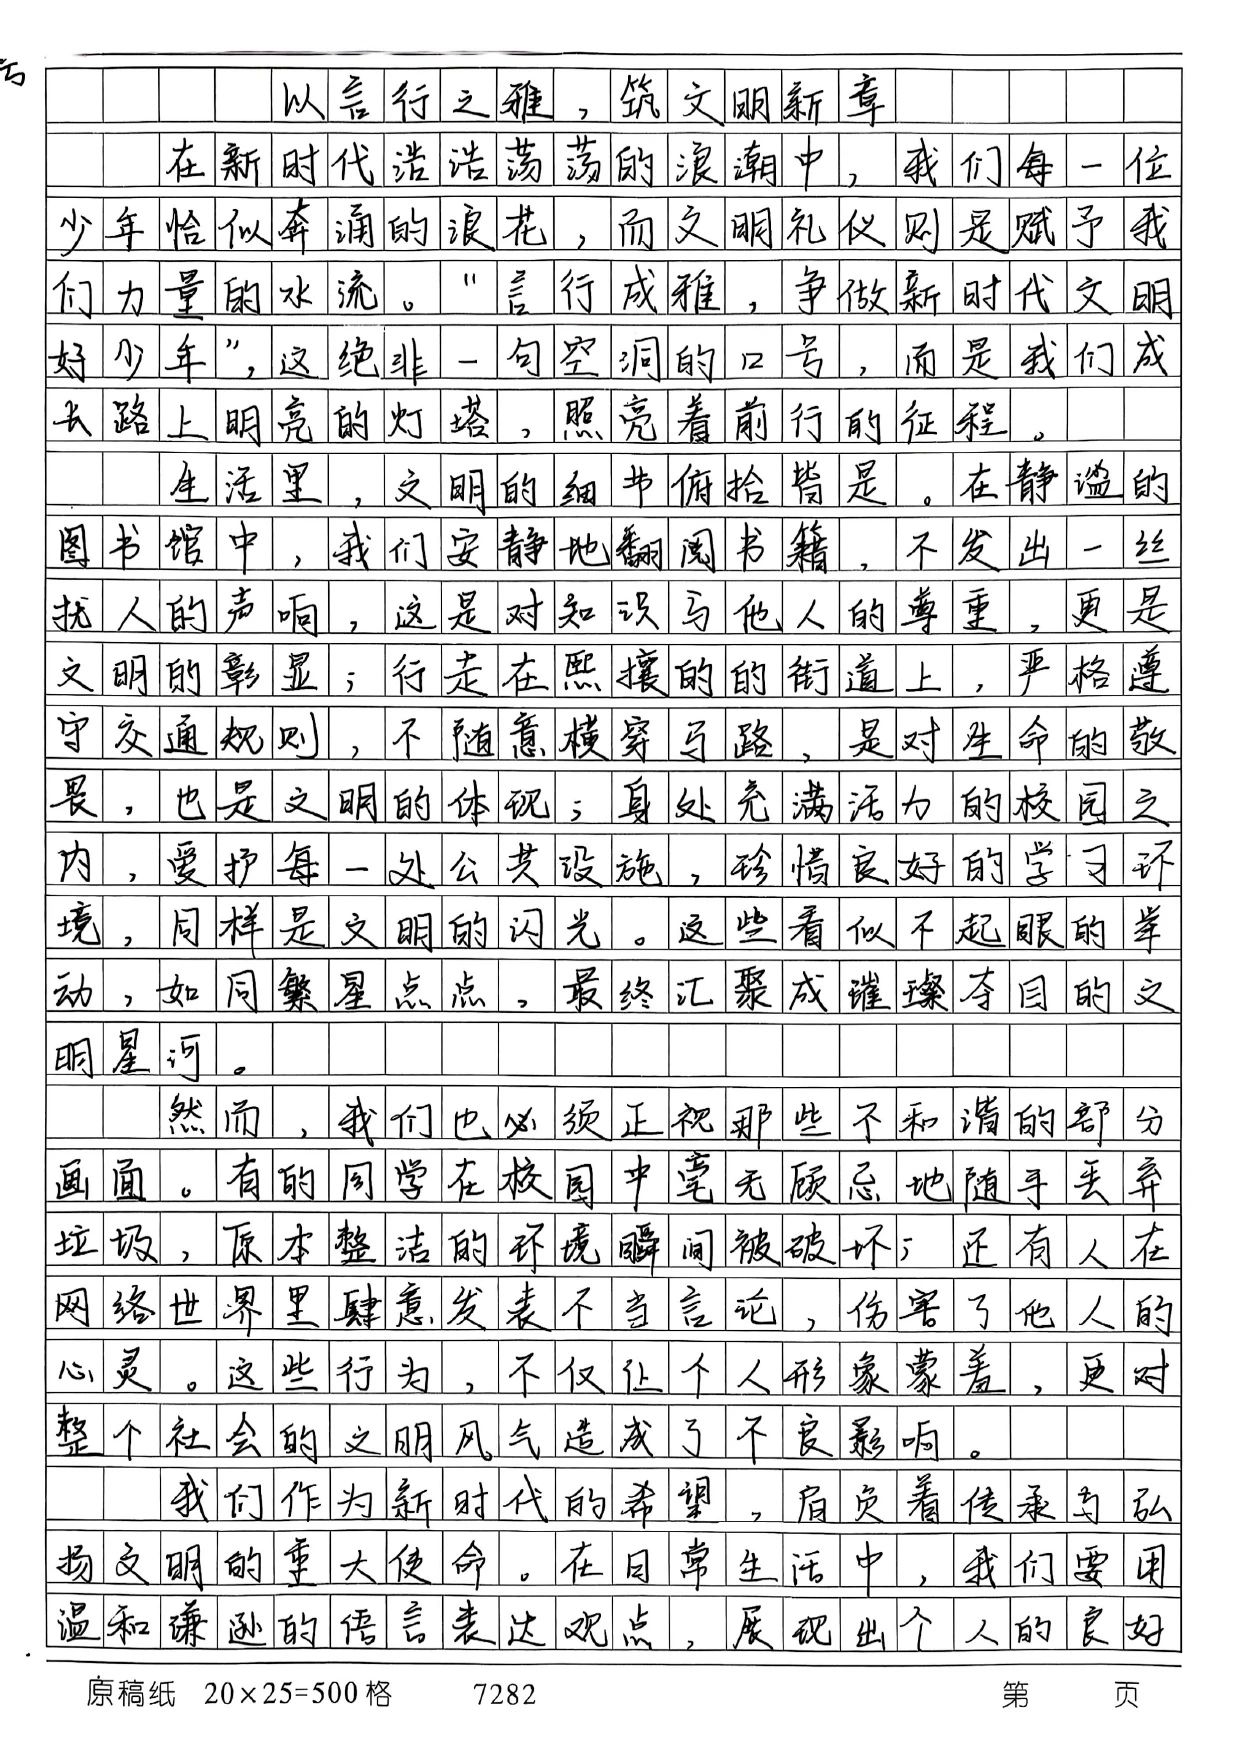 号
以言行之雅，筑文明新章
在新时代浩浩荡荡的浪潮中，我们每一位
少年恰似奔涌的浪花，而文明礼仪则是赋予我
们力量的水流。“言行成雅，争做新时代文明
好少年”，这绝非一句空洞的口号，而是我们成
长路上明亮的灯塔，照亮着前行的征程。
生活里，文明的细节俯拾皆是。在静谧的
图书馆中，我们安静地翻阅书籍，不发出一丝
扰人的声响，这是对知识与他人的尊重，更是
文明的彰显；行走在熙攘的的街道上，严格遵
守交通规则，不随意横穿马路，是对生命的敬
畏，也是文明的体现；身处充满活力的校园之
内，爱护每一处公共设施，珍惜良好的学习环
境，同样是文明的闪光。这些看似不起眼的举
动，如同繁星点点，最终汇聚成璀璨夺目的文
明星河。
然而，我们也必须正视那些不和谐的部分
画面。有的同学在校园中毫无顾忌地随手丢弃
垃圾，原本整洁的环境瞬间被破坏；还有人在
网络世界里肆意发表不当言论，伤害了他人的
心灵。这些行为，不仅让个人形象蒙羞，更对
整个社会的文明风气造成了不良影响。
我们作为新时代的希望，肩负着传承与弘
扬文明的重大使命。在日常生活中，我们要用
温和谦逊的语言表达观点，展现出个人的良好
原稿纸 20×25=500格 7282 第 页